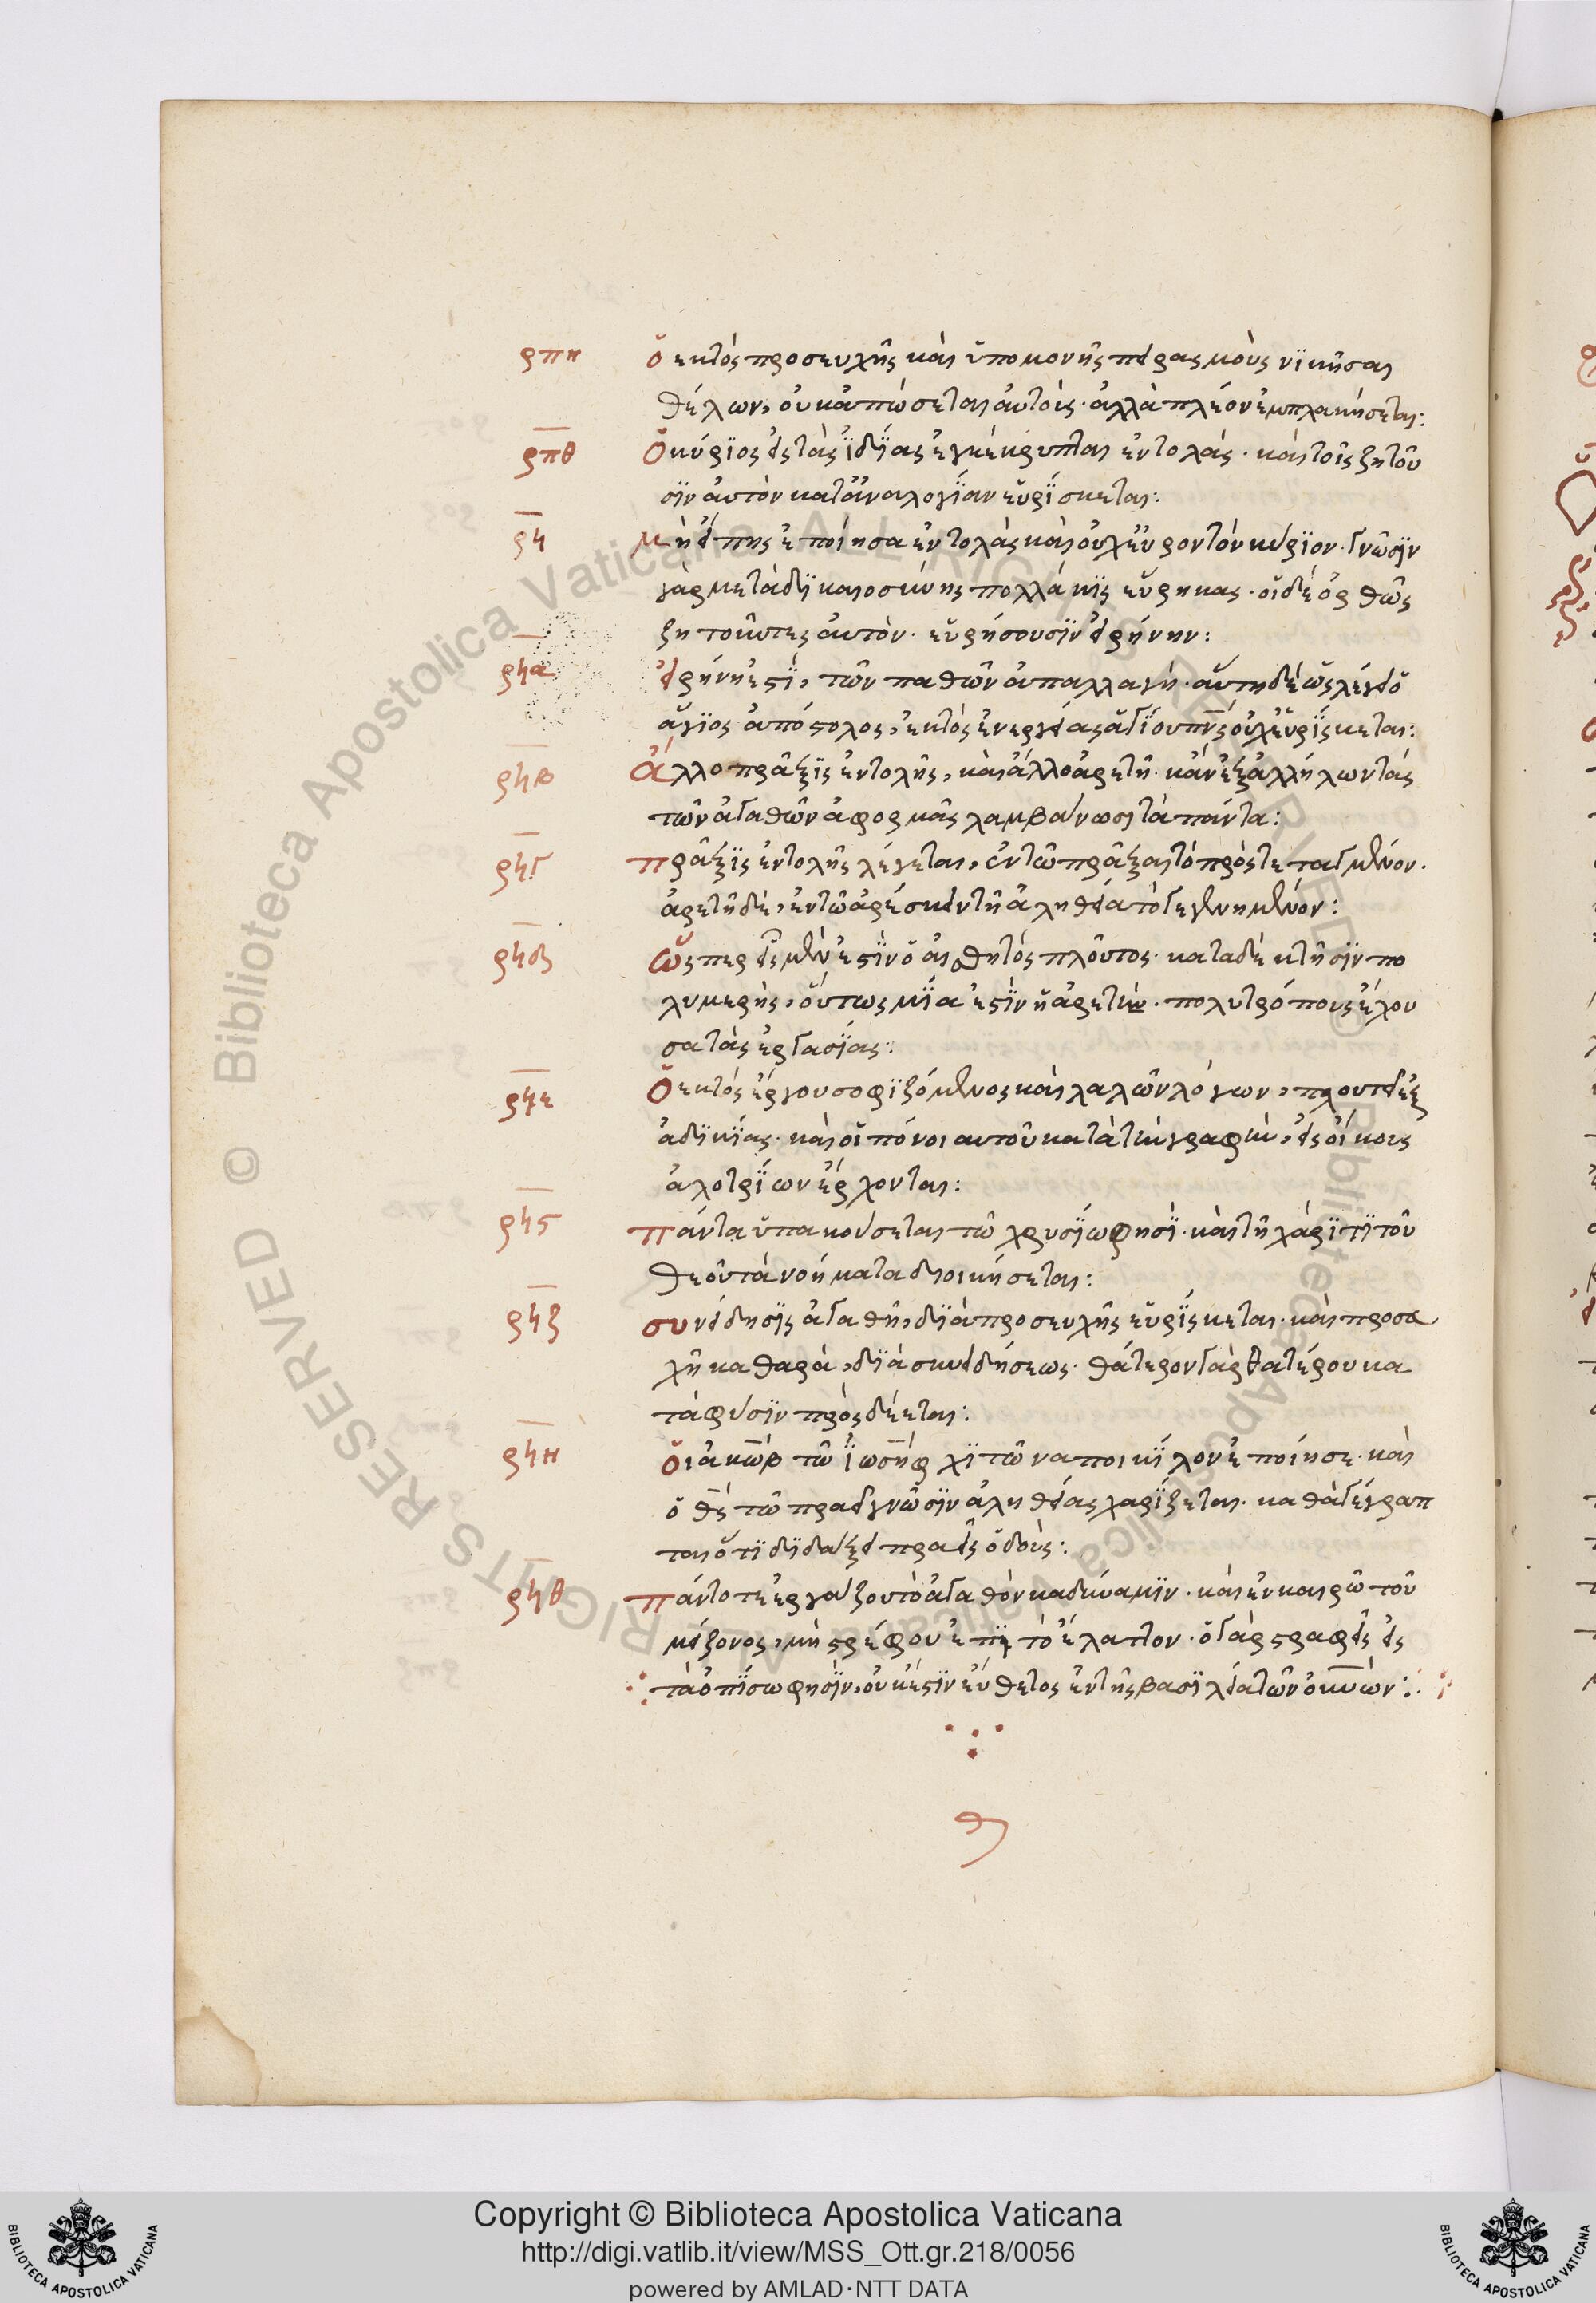 ρπη ὁ ἐκτὸς προσευχῆς καὶ ὑπομονῆς πειρασμοὺς νϊκῆσαι
θέλων, οὐκ ἀπώσεται αὐτοὶς· ἀλλὰ πλέον ἐμπλακήσεται:
ρπθ Ὁ κύρϊος εἰς τὰς ἰδΐας ἐγκέκρυπται ἐντολάς· καὶ τοῖς ζητοῦ
σϊν αὐτὸν κατἀναλογΐαν εὑρΐσκεται:
ρϟ μὴ εἴπης ἐποίησα ἐντολὰς καὶ οὐχ εὗρον τὸν κύρϊον· Γνῶσϊν
γὰρ μετὰ δϊκαιοσύνης πολλάκϊς εὕρηκας· οἱ δὲ ὀρθῶς
ζητοῦντες αὐτὸν· εὑρήσουσϊν εἰρήνην:
ρϟα εἰρήνη ἐστΐ, τῶν παθῶν ἀπαλλαγή· αὕτη δὲ ὥς λέγει ὁ
ἅγϊος ἀπόστολος, ἐκτὸς ἐνεργείας ἁγΐου πν̅ς οὐχ εὑρΐσκεται:
ρϟβ Ἄλλο πρᾶξϊς ἐντολῆς, καὶ ἄλλο ἀρετῆ· κἂν ἐξ ἀλλήλων τάς
τῶν ἀγαθῶν ἀφορμᾶς λαμβάνωσι τὰ πάντα:
ρϟγ πρᾶξϊς ἐντολῆς λέγεται, ἐν τῶ πρᾶξαι τὸ πρόστεταγμένον·
ἀρετῆ δὲ, ἐν τῶ ἀρέσκειν τῆ ἀληθεία τὸ γεγενημένόν:
ρϟδ Ὥσπερ εἷς μὲν ἐστϊν ὁ αἰσθητὸς πλοῦτος· κατα δὲ κτῆσϊν πο
λυμερὴς, οὕτως μΐα ἐστϊν ἡ ἀρετὴ· πολυτρόπους ἔχου
σα τὰς ἐργασΐας:
ρϟε Ὁ ἐκτός ἔργου σοφϊζόμενος καὶ λαλῶν λόγων, πλουτεῖ ἐξ
ἀδϊκΐας· καὶ οἱ πόνοι αυτοῦ κατὰ τὴν γραφὴν, εἰς οἴκους
ἀλοτρΐων ἔρχονται:
ρϟϛ πάντα ὑπακούσεται τῶ χρυσΐω φησΐ· καὶ τῆ χάρϊτϊ τοῦ
θεοῦ τὰ νοήματα διοικήσεται:
ρϟζ συνείδησϊς ἀγαθῆ, δϊὰ προσευχῆς εὑρΐσκεται· καὶ προσευ
χῆ καθαρὰ, δϊὰ συνειδήσεως· θάτερον γὰρ θατέρου κα
τὰ φύσϊν πρὸς δέεται:
ρϟη ὁ ιἀκὼβ τῶ ἰωσῆφ χϊτῶνα ποικΐλον ἐποίησε· καὶ
ὁ θς̅ τῶ πραεῖ γνῶσϊν ἀληθείας χαρΐζεται· καθὰ γέγραπ
ται ὅτϊ δϊδάξει πραεῖς ὁδοὺς:
ρϟθ πάντοτε ἐργάζου τὸ ἀγαθὸν κα δύναμϊν· καὶ ἐν καιρῶ τοῦ
μείζονος, μὴ στρέφου ἐπϊ τὸ ἔλαττον· ὁ γὰρ στραφεὶς εἰς
τὰ ὀπΐσω φησΐν, οὐκ ἔστϊν εὔθετος ἐν τῆς βασϊλεία τῶν οὐν̅ών:
Copyright © Biblioteca Apostolica Vaticana
http://digi.vatlib.it/view/MSS_Ott.gr.218/0056
powered by AMLAD·NTT DATA
BIBLIOTECA APOSTOLICA VATICANA
BIBLIOTECA APOSTOLICA VATICANA
© Biblioteca Apostolica Vaticana ALL RIGHTS RESERVED
© Biblioteca Apostolica Vaticana ALL RIGHTS RESERVED